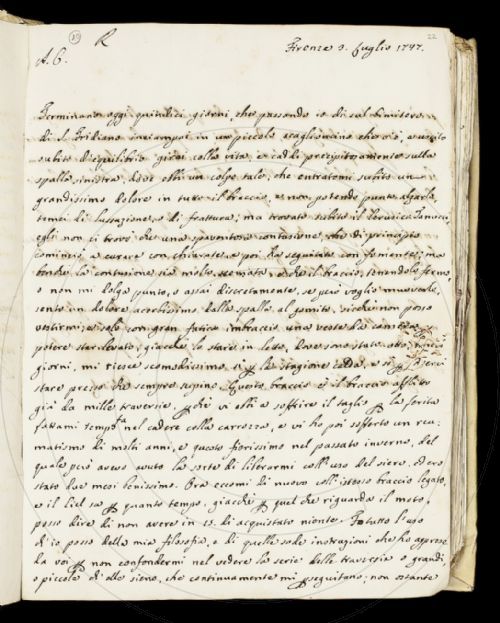 R
22
A. C.
Firenze 9. Luglio 1747.
Terminano oggi quindici giorni, che passando io di sul
di S. Fridiano inciampai in un piccolo scaglioncino che vi è, e uscito
subito d'equilibrio girai colla vita, e caddi precipitosamente sulla
spalla sinistra, dove ebbi un colpo tale, che entratomi subito un
grandissimo dolore in tutto il braccio, e non potendo punto alzarlo
temei di lussazione, o di frattura, ma trovato subito il
egli non ci trovò che una spaventosa contusione, che di principio
cominciò a curare con chiarate, e poi ha seguitato con fomente; ma
benche la contusione sia molto scemata, e che il braccio, tenendolo fermo,
o non mi dolga punto, o assai discretamente, se però voglio muoverlo,
sento un dolore acerbissimo dalla spalla al gomito, sicchè non posso
vestirmi, e solo con gran fatica imbraccio una veste da camera
potere star levato, giacchè lo stare in letto, dove sono stato otto
giorni, mi riesce scomodissimo, sì per la stagione calda, e sì per
stare presso che sempre supino. Questo braccio è il braccio afflitto
già da mille traversie, perchè vi ebbi a soffrire il taglio per la ferita
fattami nel cadere colla carrozza, e vi ho poi sofferto un reu-
matismo di molti anni, e questo fierissimo nel passato inverno, del
quale però avevo avuto la sorte di liberarmi coll'uso del siero, ed ero
stato due mesi benissimo. Ora eccomi di nuovo coll'istesso braccio legato,
e il Ciel sa per quanto tempo, giacchè per quel che riguarda il moto,
posso dire di non avere in 15. dì acquistato niente. Fo tutto l'uso
ch'io posso della mia filosofia, e di quelle sode instruzioni che ho apprese
da voi per non confondermi nel vedere la serie delle traversie o grandi,
o piccole ch'elle sieno, che continuamente mi perseguitano; non ostante